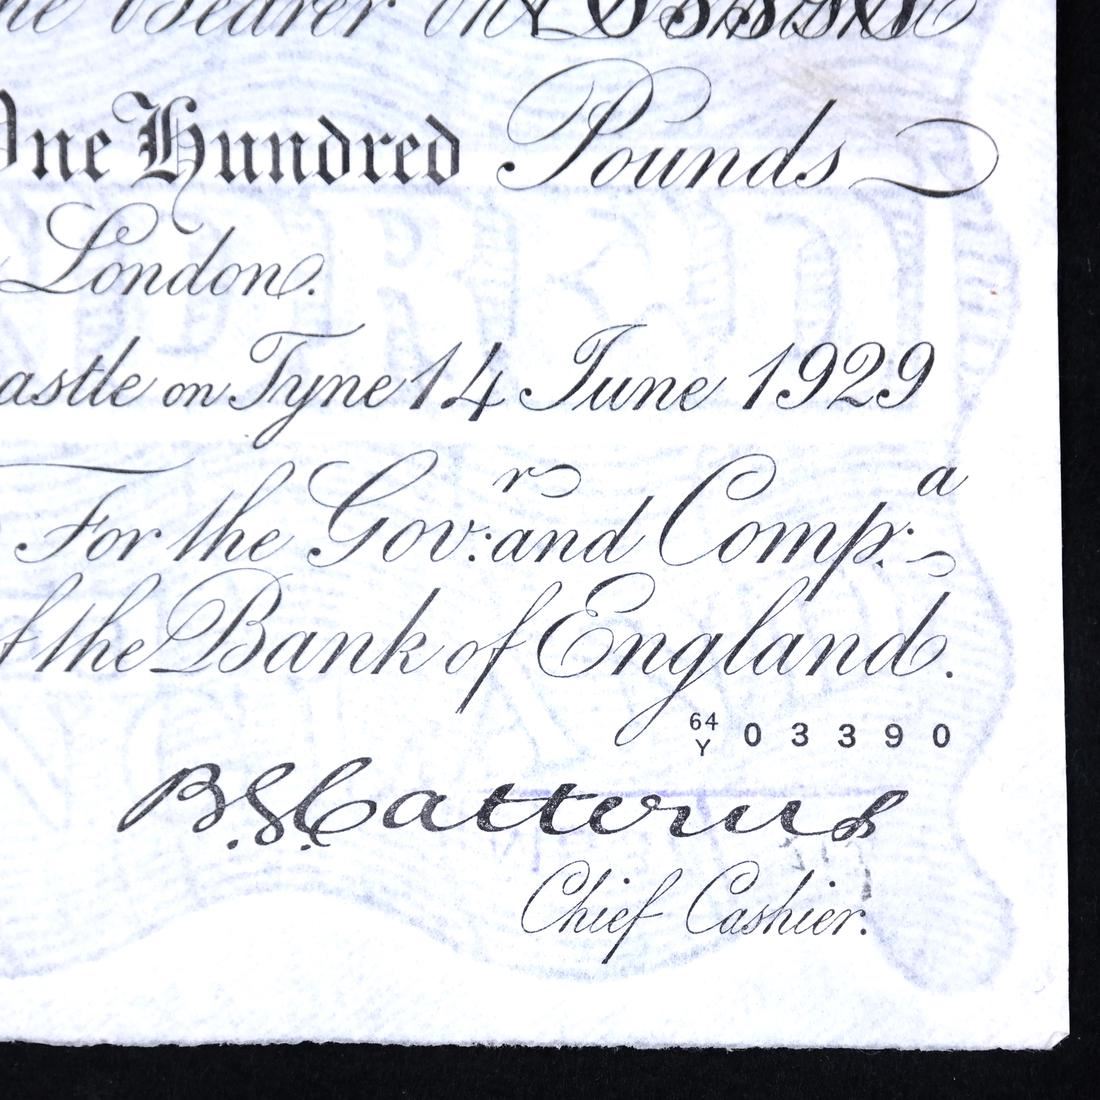 Bearer on
One Hundred Pounds
London.
astle on Tyne 14 June 1929
For the Gov:r and Comp:a
of the Bank of England.
64
Y 03390
B.G. Catterns
Chief Cashier.